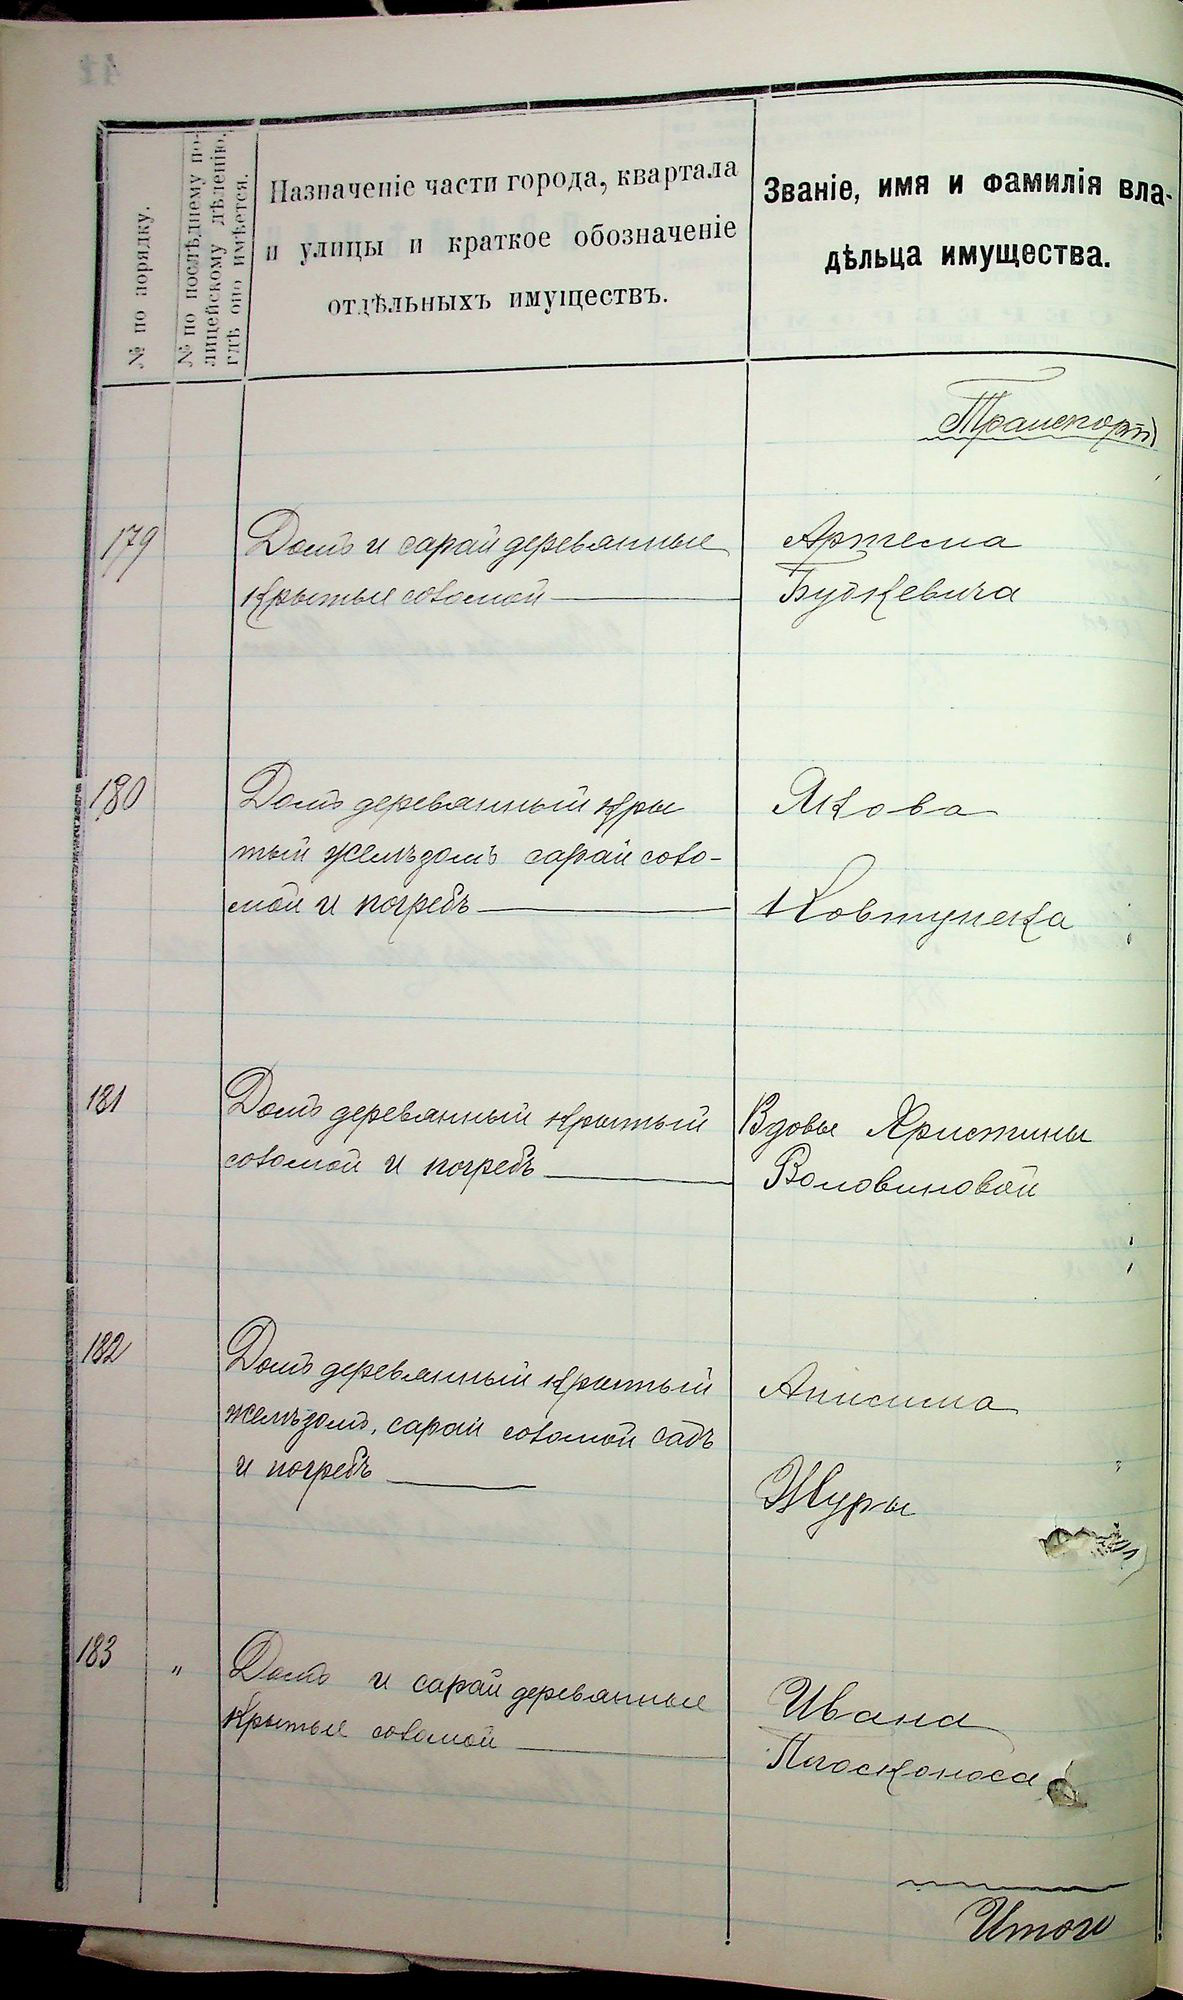 № по порядку.
№ по послѣднему по-
лицейскому дѣленію,
гдѣ оно имѣется.
Назначеніе части города, квартала
и улицы и краткое обозначеніе
отдѣльныхъ имуществъ.
Званіе, имя и фамилія вла-
дѣльца имущества.
Транспортъ
179 Домъ и сарай деревянные Артема
крытые соломой Будкевича
180 Домъ деревянный кры Якова
тый желѣзомъ сарай соло-
мой и погребъ Ковтуненка
181 Домъ деревянный крытый Вдовы Христины
соломой и погребъ Воловиковой
182 Домъ деревянный крытый Анисима
желѣзомъ, сарай соломой садъ
и погребъ Журы
183 " Домъ и сарай деревянные Ивана
крытые соломой Плосконоса
Итого